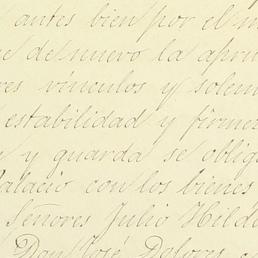 antes bien por el m
e de nuevo la apru
res vínculos y solem
estabilidad y firmez
y guarda se obliga
Palacio con los bienes
Señores Julio Hild
Don José Dolores